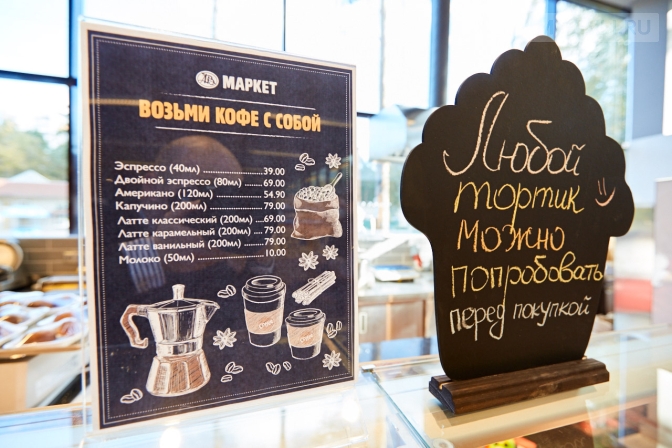 МАРКЕТ
ВОЗЬМИ КОФЕ С СОБОЙ
Эспрессо (40мл) 39.00
Двойной эспрессо (80мл) 69.00
Американо (120мл) 54.90
Капучино (200мл) 79.00
Латте классический (200мл) 69.00
Латте карамельный (200мл) 79.00
Латте ванильный (200мл) 79.00
Молоко (50мл) 10.00
Любой
тортик
можно
попробовать
перед покупкой